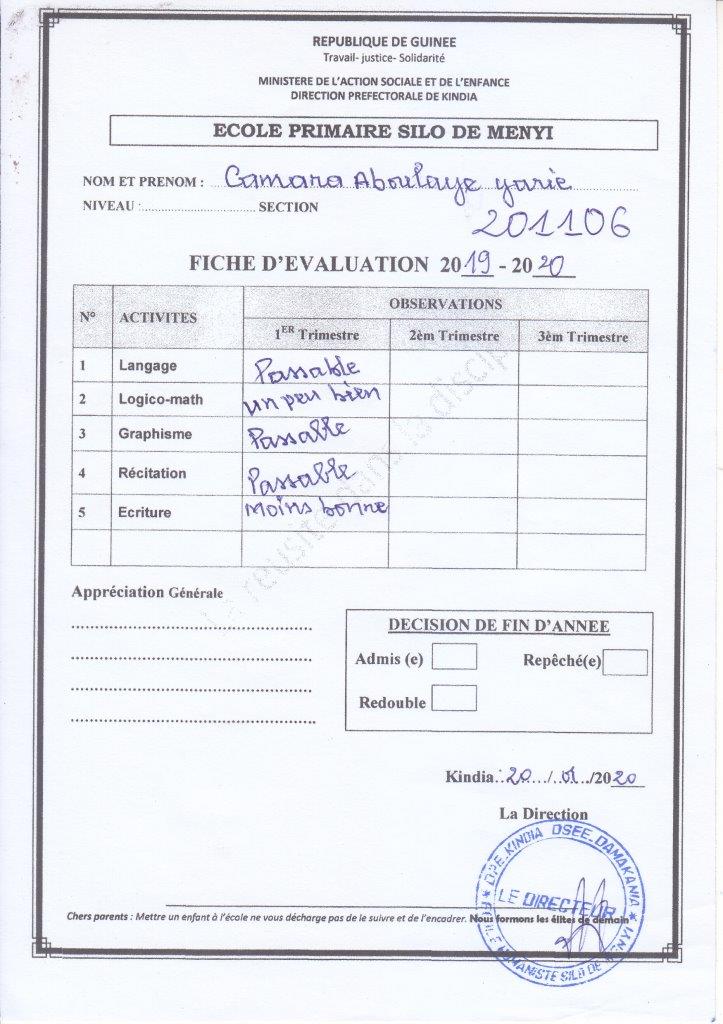 REPUBLIQUE DE GUINEE
Travail- justice- Solidarité
MINISTERE DE L'ACTION SOCIALE ET DE L'ENFANCE
DIRECTION PREFECTORALE DE KINDIA
ECOLE PRIMAIRE SILO DE MENYI
NOM ET PRENOM : Camara Aboulaye yarie
NIVEAU :............................ SECTION
201106
FICHE D'EVALUATION 2019 - 2020
N° ACTIVITES OBSERVATIONS
1ER Trimestre 2èm Trimestre 3èm Trimestre
1 Langage Passable
2 Logico-math un peu bien
3 Graphisme Passable
4 Récitation Passable
5 Ecriture Moins bonne
La réusite dans la discip
Appréciation Générale
DECISION DE FIN D'ANNEE
Admis (e) Repêché(e)
Redouble
Kindia : 20 / 01 /2020
La Direction
DPE.KINDIA DSEE.DAMAKANIA
LE DIRECTEUR
HUMANISTE SILO DE MENYI
Chers parents : Mettre un enfant à l'école ne vous décharge pas de le suivre et de l'encadrer. Nous formons les élites de demain